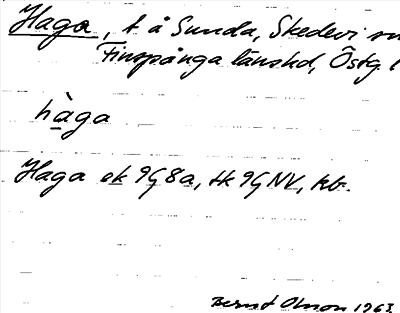 Haga, t å Sunda, Skedevi sn
Finspånga länshd, Östg l
hàga
Haga ek 9G8a, tk 9G NV, kb.
Bernt Olsson 1963